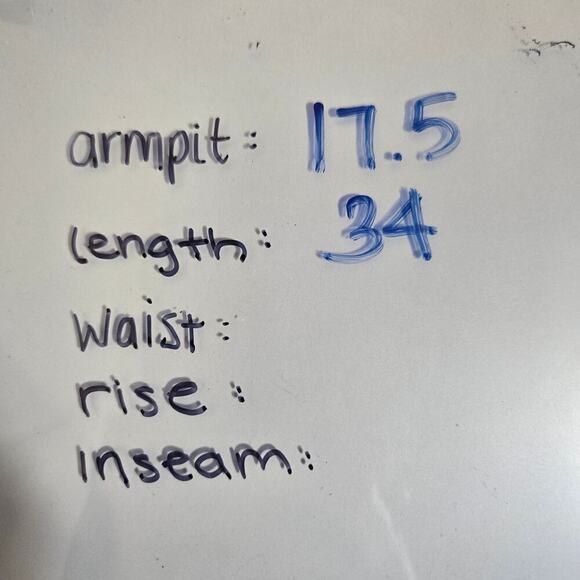 armpit: 17.5
length: 34
waist:
rise:
inseam: